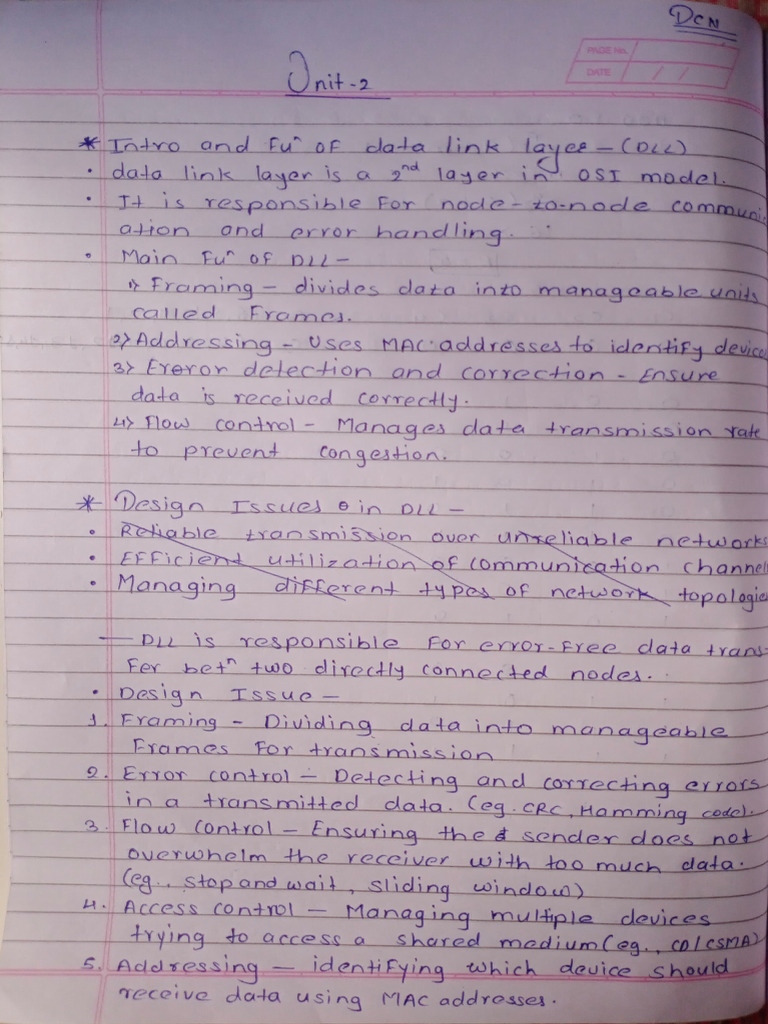 DCN
PAGE No.
DATE / /
Unit-2
* Intro and Fuⁿ OF data link layer - (DLL)
• data link layer is a 2nd layer in OSI model.
• It is responsible For node-to-node communi-
ation and error handling.
• Main Fuⁿ OF DLL -
1) Framing - divides data into manageable units
called Frames.
2) Addressing - Uses MAC addresses to identify device
3) Error detection and correction - Ensure
data is received correctly.
4) Flow control - Manages data transmission rate
to prevent congestion.
* Design Issues in DLL -
• Reliable transmission over unreliable networks
• Efficient utilization of communication channel
• Managing different types of network topologie
— DLL is responsible For error-Free data trans-
Fer betⁿ two directly connected nodes.
• Design Issue -
1. Framing - Dividing data into manageable
Frames For transmission
2. Error control - Detecting and correcting errors
in a transmitted data. (eg. CRC, Hamming code).
3. Flow control - Ensuring the sender does not
overwhelm the receiver with too much data.
(eg., stop and wait, sliding window)
4. Access control - Managing multiple devices
trying to access a shared medium (eg., CD/CSMA)
5. Addressing - identifying which device should
receive data using MAC addresses.